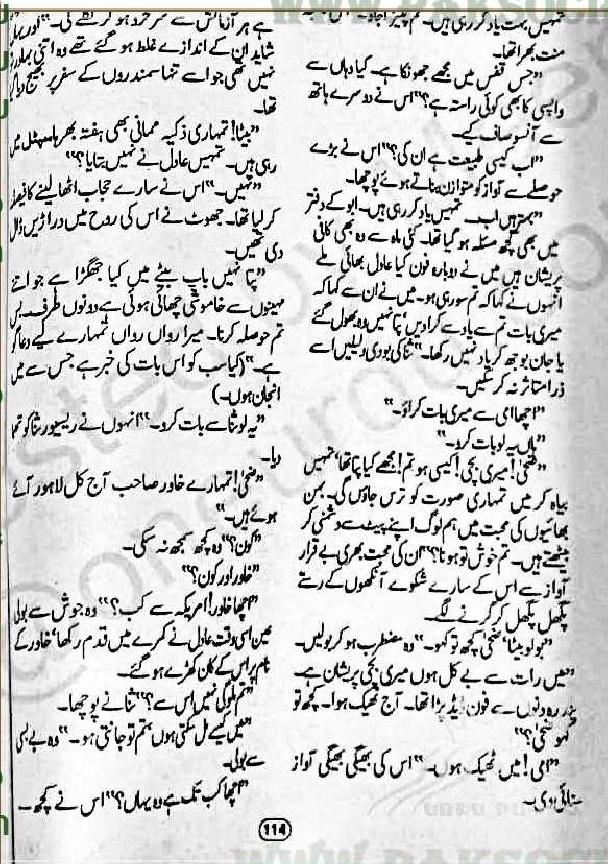 تمہیں بہت یاد کر رہی ہیں۔ تم پلیز آجاؤ۔"
منت بھرا تھا۔
"جس قفس میں مجھے جھونکا ہے۔ کیا وہاں سے
واپسی کا بھی کوئی راستہ ہے؟" اس نے دوسرے ہاتھ
سے آنسو صاف کیے۔
"اب کیسی طبیعت ہے ان کی؟" اس نے بڑے
حوصلے سے آواز کو متوازن بناتے ہوئے پوچھا۔
"بہتر ہیں اب۔ تمہیں یاد کر رہی ہیں۔ ابو کے دفتر
میں بھی کچھ مسئلہ ہو گیا تھا۔ کئی ماہ سے وہ بھی کافی
پریشان ہیں میں نے دوبارہ فون کیا عادل بھائی ملے
انہوں نے کہا کہ تم سو رہی ہو۔ میں نے ان سے کہا کہ
میری بات تم سے یاد سے کرا دیں' پتا نہیں وہ بھول گئے
یا جان بوجھ کر یاد نہیں رکھا۔" ثنا کی بودی دلیلیں اسے
ذرا متاثر نہ کر سکیں۔
"اچھا امی سے میری بات کراؤ۔"
"ہاں یہ لو بات کرو۔"
"ضحیٰ! میری بچی! کیسی ہو تم! مجھے کیا پتا تھا' تمہیں
بیاہ کر میں تمہاری صورت کو ترس جاؤں گی۔ بہن
بھائیوں کی محبت میں ہم لوگ اپنے پیٹ سے دشمنی کر
بیٹھتے ہیں۔ تم خوش تو ہونا؟" ان کی محبت بھری بے قرار
آواز سے اس کے سارے شکوے آنکھوں کے رستے
پگھل پگھل کر گرنے لگے۔
"بولو بیٹا' ضحیٰ' کچھ تو کہو۔" وہ مضطرب ہو کر بولیں۔
"میں رات سے بے کل ہوں میری بچی پریشان ہے۔
پندرہ دنوں سے فون ڈیڈ پڑا تھا۔ آج ٹھیک ہوا۔ کچھ تو
کہو ضحیٰ؟"
"امی! میں ٹھیک ہوں۔" اس کی بھیگی بھیگی آواز
سنائی دی۔
ہے ہر آزمائش سے سرخرو ہو کر نکلے گی۔" اور یہاں
شاید ان کے اندازے غلط ہو گئے تھے وہ اتنی بہادر تو
نہیں تھی جو اسے تنہا سمندروں کے سفر پر بھیج دیا گیا
تھا۔
"بیٹا! تمہاری ذکیہ ممانی بھی ہفتہ بھر ہاسپٹل میں
رہی ہیں۔ تمہیں عادل نے نہیں بتایا؟"
"نہیں۔" اس نے سارے حجاب اٹھا لینے کا فیصلہ
کر لیا تھا۔ جھوٹ نے اس کی روح میں دراڑیں ڈال
دی تھیں۔
"پتا نہیں باپ بیٹے میں کیا جھگڑا ہے جو اتنے
مہینوں سے خاموشی چھائی ہوئی ہے دونوں طرف۔ بس
تم حوصلہ کرنا۔ میرا رواں رواں تمہارے لیے دعا گو
ہے۔" (کیا سب کو اس بات کی خبر ہے جس سے میں
انجان ہوں۔)
"یہ لو ثنا سے بات کرو۔" انہوں نے ریسیور ثنا کو تھما
دیا۔
"ضحیٰ! تمہارے خاور صاحب آج کل لاہور آئے
ہوئے ہیں۔"
"کون؟" وہ کچھ سمجھ نہ سکی۔
"خاور اور کون؟"
"اچھا خاور! امریکہ سے کب؟" وہ جوش سے بولی
عین اسی وقت عادل نے کمرے میں قدم رکھا' خاور کے
نام پر اس کے کان کھڑے ہو گئے۔
"تم ملو گی نہیں اس سے؟" ثنا نے پوچھا۔
"میں کیسے مل سکتی ہوں' تم تو جانتی ہو۔" وہ بے بسی
سے بولی۔
"اچھا کب تک ہے وہ یہاں؟" اس نے کچھ۔
114